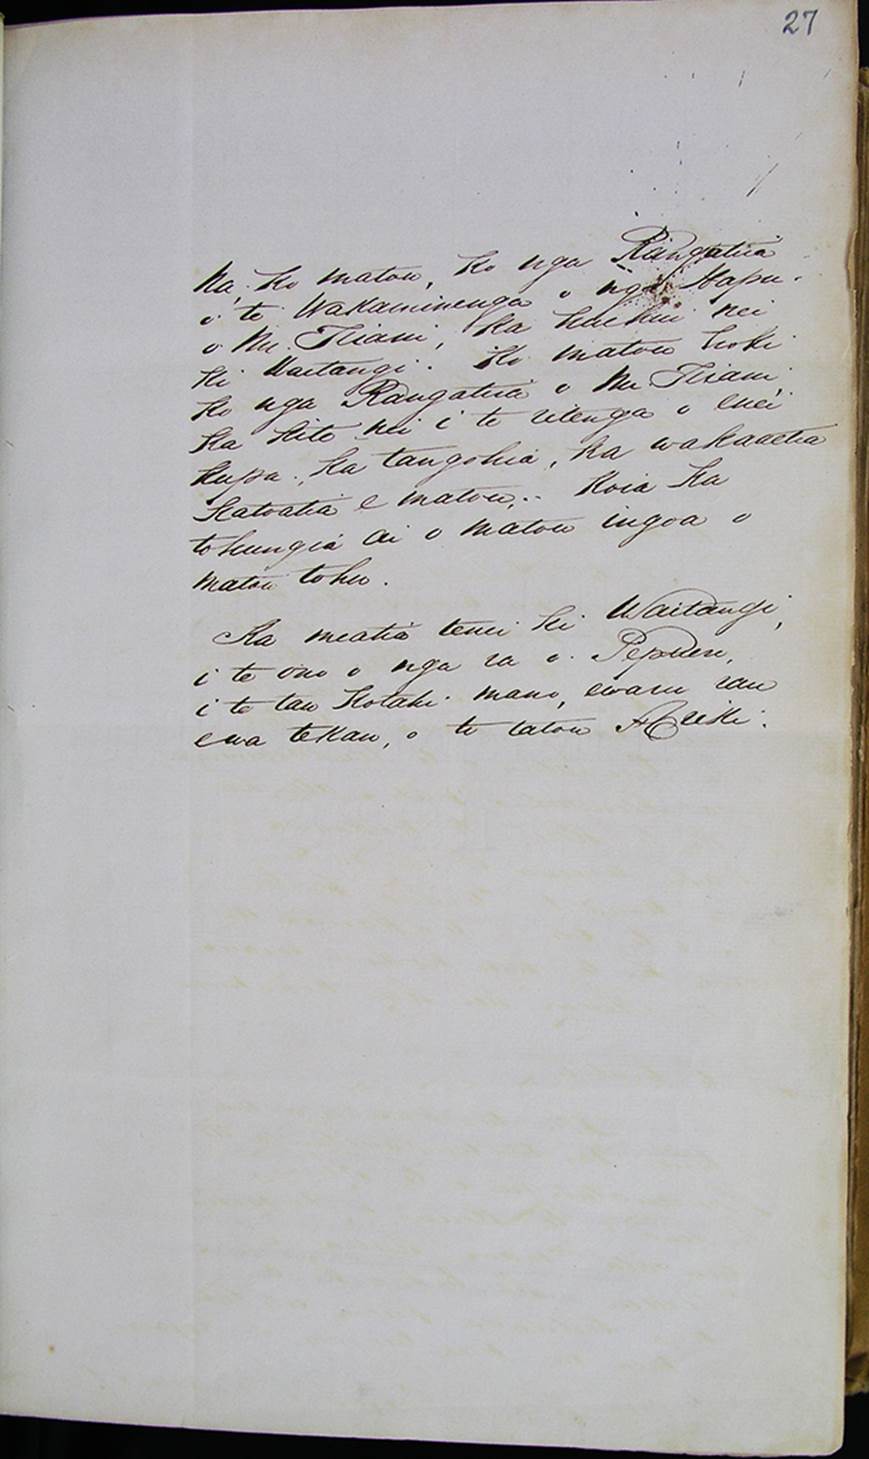 27
Na, ko matou, ko nga Rangatira
o te Wakaminenga o nga Hapu
o Nu Tirani, ka huihui nei
ki Waitangi. Ko matou hoki
ko nga Rangatira o Nu Tirani,
ka kite nei i te ritenga o enei
kupu, ka tangohia, ka wakaaetia
katoatia e matou. Koia ka
tohungia ai o matou ingoa o
matou tohu.
Ka meatia tenei ki Waitangi,
i te ono o nga ra o Pepueri,
i te tau kotahi mano, ewaru rau
ewa tekau, o to tatou Ariki.